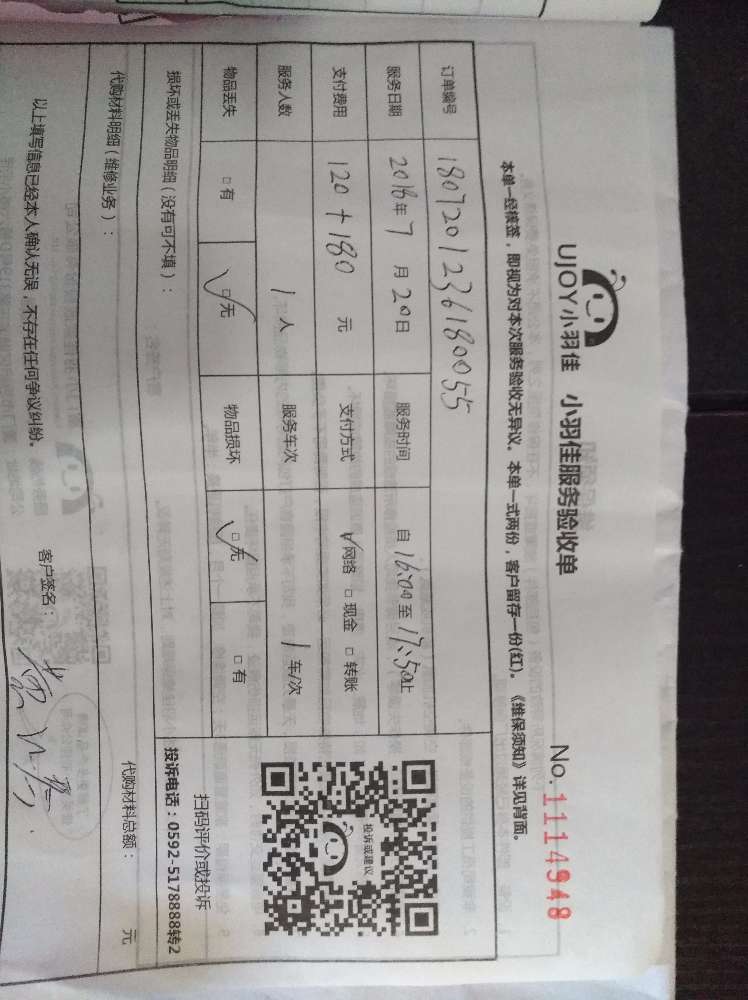 UJOY小羽佳 小羽佳服务验收单 No.1114948
本单一经核签，即视为对本次服务验收无异议。本单一式两份，客户留存一份(红)。《维保须知》详见背面。
订单编号 18072012361180055
服务日期 2018年7月20日 服务时间 自16:00至17:50止
支付费用 120+180 元 支付方式 ☑网络 □现金 □转账
服务人数 1人 服务车次 1车/次
物品丢失 □有 ☑无 物品损坏 ☑无 □有
投诉或建议
扫码评价或投诉
投诉电话：0592-5178888转2
损坏或丢失物品明细（没有可不填）：
代购材料明细（维修业务）： 代购材料总额： 元
以上填写信息已经本人确认无误，不存在任何争议纠纷。 客户签名：